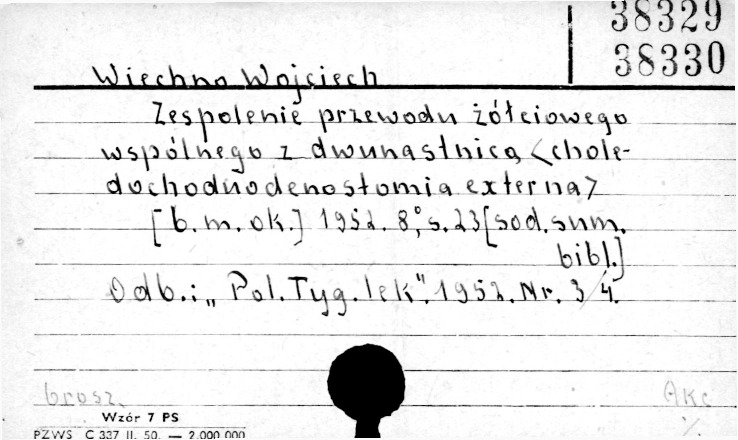 38329
38330
Wiechno Wojciech
Zespolenie przewodu żółciowego
wspólnego z dwunastnicą <chole-
dochoduodenostomia externa>
[b.m.ok.] 1952. 8°, s. 23 [sod. sum.
bibl.]
Odb.: „Pol. Tyg. lek". 1952. Nr. 3/4.
brosz. Akc
Wzór 7 PS
PZWS C 337 II. 50. — 2.000.000